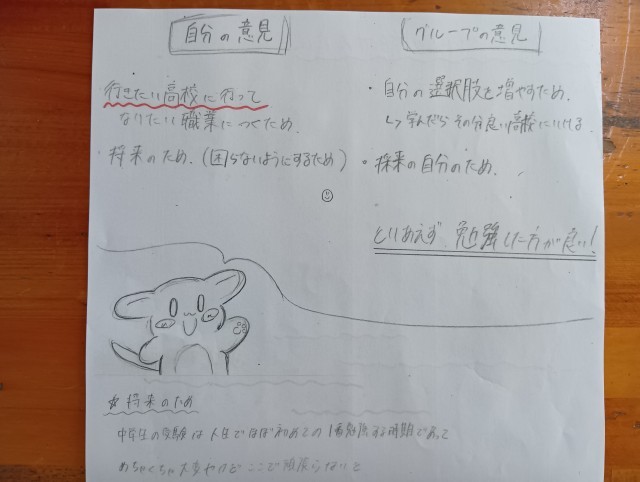 自分の意見
行きたい高校に行って
なりたい職業につくため。
・将来のため.(困らないようにするため)
グループの意見
・自分の選択肢を増やすため.
↳学んだら その分良い高校にいける
・将来の自分のため.
とりあえず 勉強した方が良い!
☆将来のため
中学生の受験は人生でほぼ初めての1番 する であって
めちゃくちゃ大変やけど ここで頑張らないと